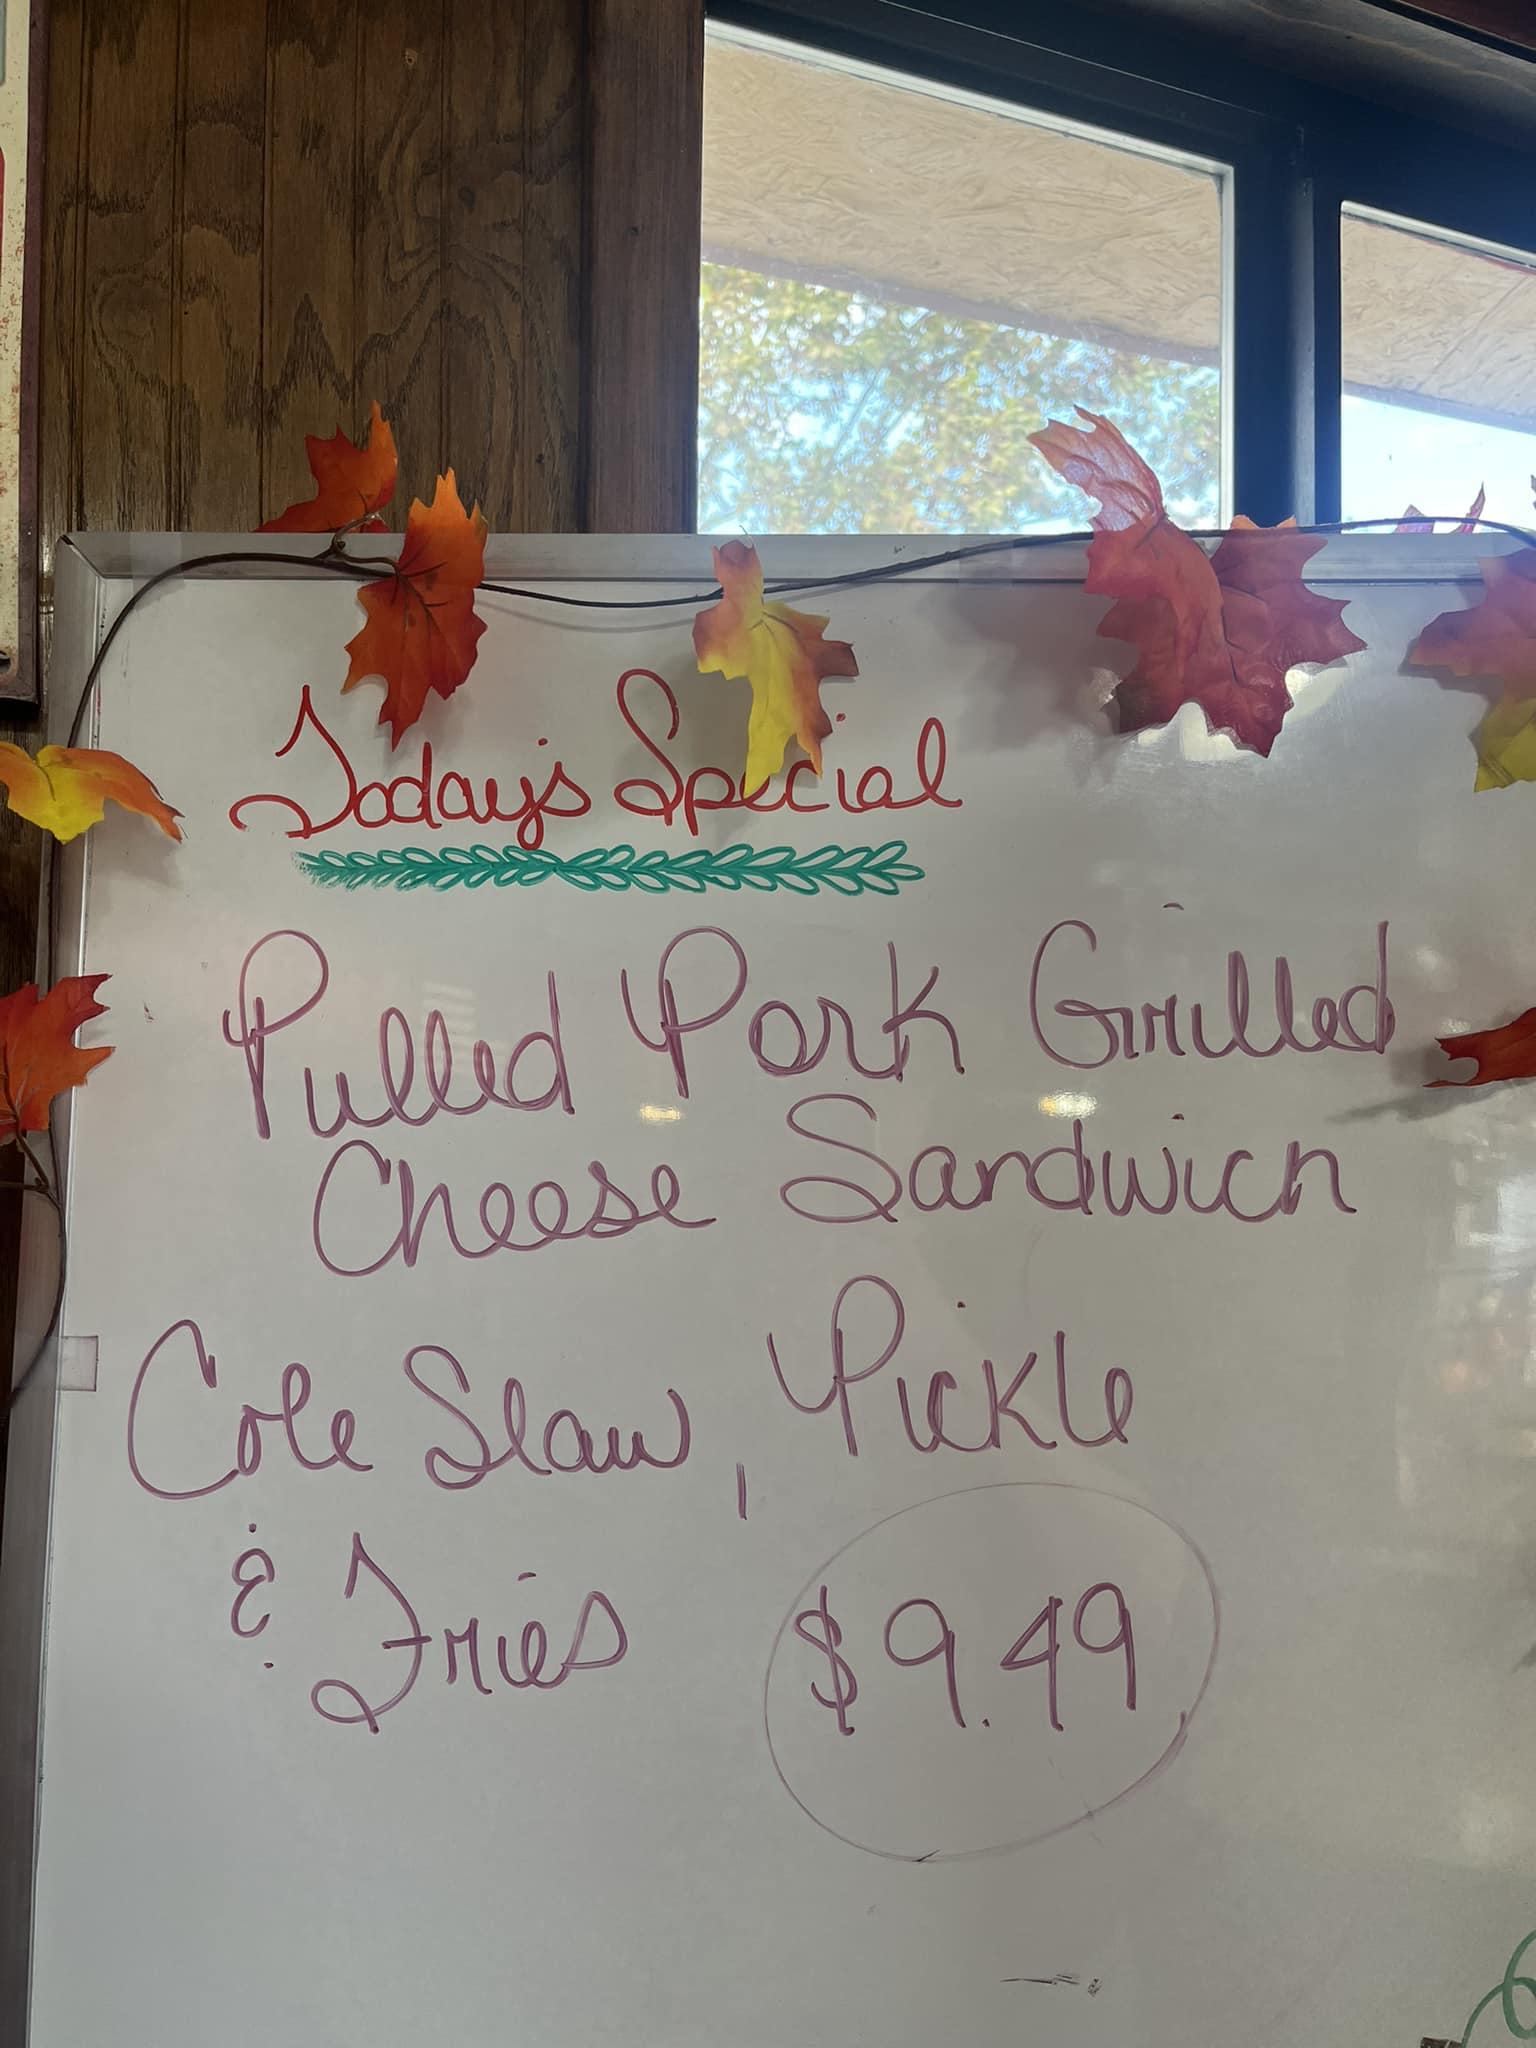 Today's Special
Pulled Pork Grilled
Cheese Sandwich
Cole Slaw, Pickle
& Fries $9.49